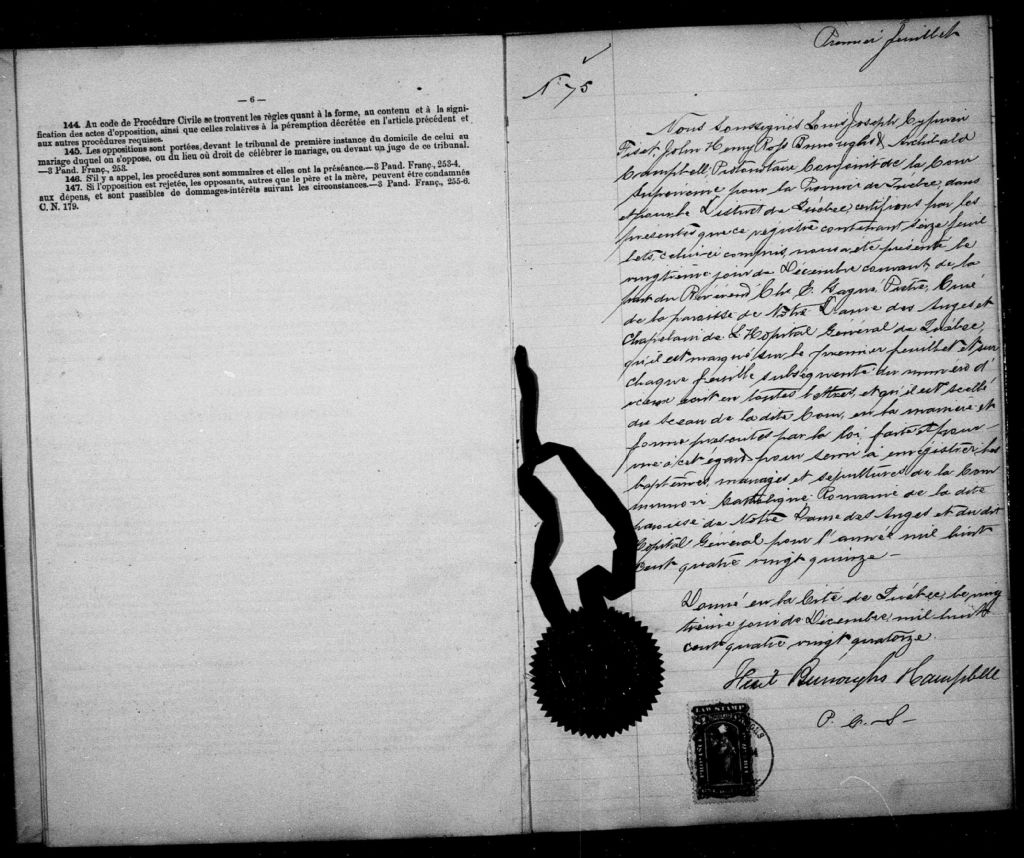 — 6 —
144. Au code de Procédure Civile se trouvent les règles quant à la forme, au contenu et à la signi-
fication des actes d'opposition, ainsi que celles relatives à la péremption décrétée en l'article précédent et
aux autres procédures requises.
145. Les oppositions sont portées devant le tribunal de première instance du domicile de celui au
mariage duquel on s'oppose, ou du lieu où droit de célébrer le mariage, ou devant un juge de ce tribunal.
—3 Pand. Franç., 253.
146. S'il y a appel, les procédures sont sommaires et elles ont la préséance.—3 Pand. Franç., 253-4.
147. Si l'opposition est rejetée, les opposants, autres que le père et la mère, peuvent être condamnés
aux dépens, et sont passibles de dommages-intérêts suivant les circonstances.—3 Pand. Franç., 255-6.
C. N. 179.
Premier feuillet
No 75
Nous soussignés Louis Joseph Cyprien
Fiset, John Henry Ross Burroughs & Archibald
Campbell, Protonotaire Conjoint de la Cour
Supérieure pour la Province de Québec, dans
et pour le District de Québec, certifions par les
presentes que ce régistre contenant seize feuil
lets, celui-ci compris, nous a été présenté le
vingtième jour de Décembre courant, de la
part du Révérend Chs E. Gagné, Ptre, Curé
de la paroisse de Notre Dame des Anges et
Chapelain de L'Hopital Général de Québec,
qu'il est marqué sur le premier feuillet et sur
chaque feuille subséquente du numéro d'
icelui écrit en toutes lettres, et qu'il est scellé
du sceau de la dite Cour, en la manière et
forme présentes par la loi, faite et pour-
vue à cet égard pour servir à enregistrer les
baptêmes, mariages et sépultures de la Com
munion Catholique Romaine de la dite
paroisse de Notre Dame des Anges et du dit
Hopital Général pour l'année mil huit
cent quatre vingt quinze —
Donné en la Cité de Québec, le ving
tième jour de Décembre, mil huit
cent quatre vingt quatorze.
Fiset Burroughs & Campbell
P. C. S —
LAW STAMP